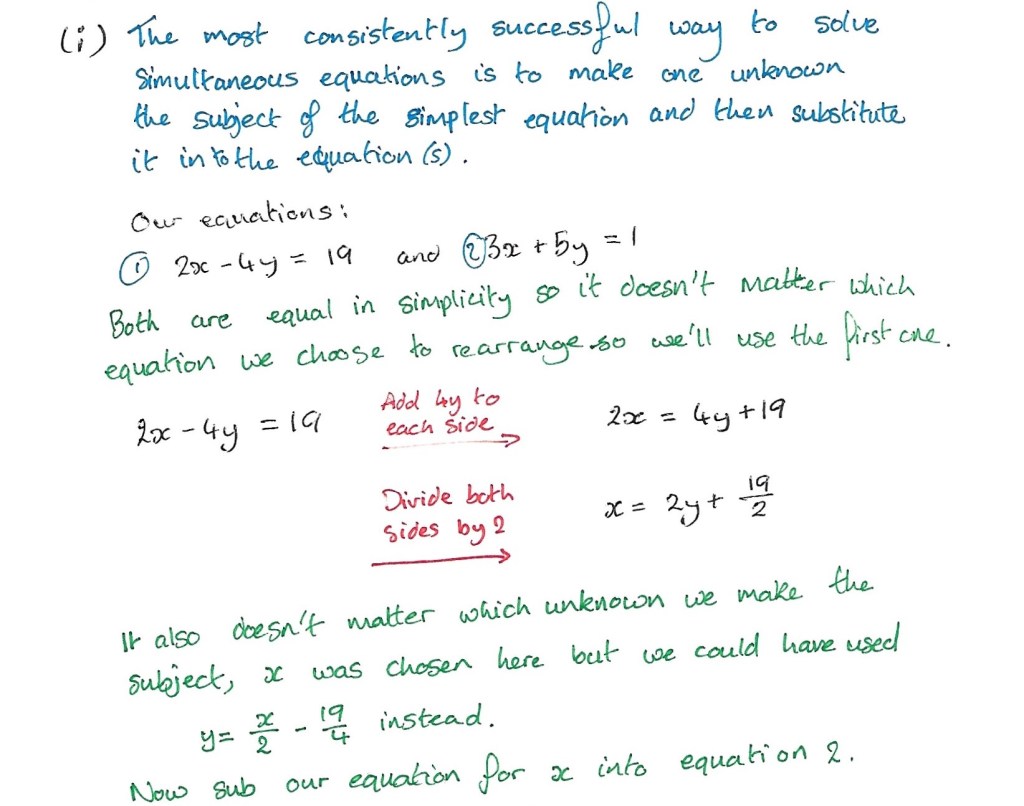 (i) The most consistently successful way to solve
simultaneous equations is to make one unknown
the subject of the simplest equation and then substitute
it into the equation(s).
Our equations:
① 2x - 4y = 19 and ② 3x + 5y = 1
Both are equal in simplicity so it doesn't matter which
equation we choose to rearrange so we'll use the first one.
2x - 4y = 19 Add 4y to each side → 2x = 4y + 19
Divide both sides by 2 → x = 2y + 19/2
It also doesn't matter which unknown we make the
subject, x was chosen here but we could have used
y = x/2 - 19/4 instead.
Now sub our equation for x into equation 2.